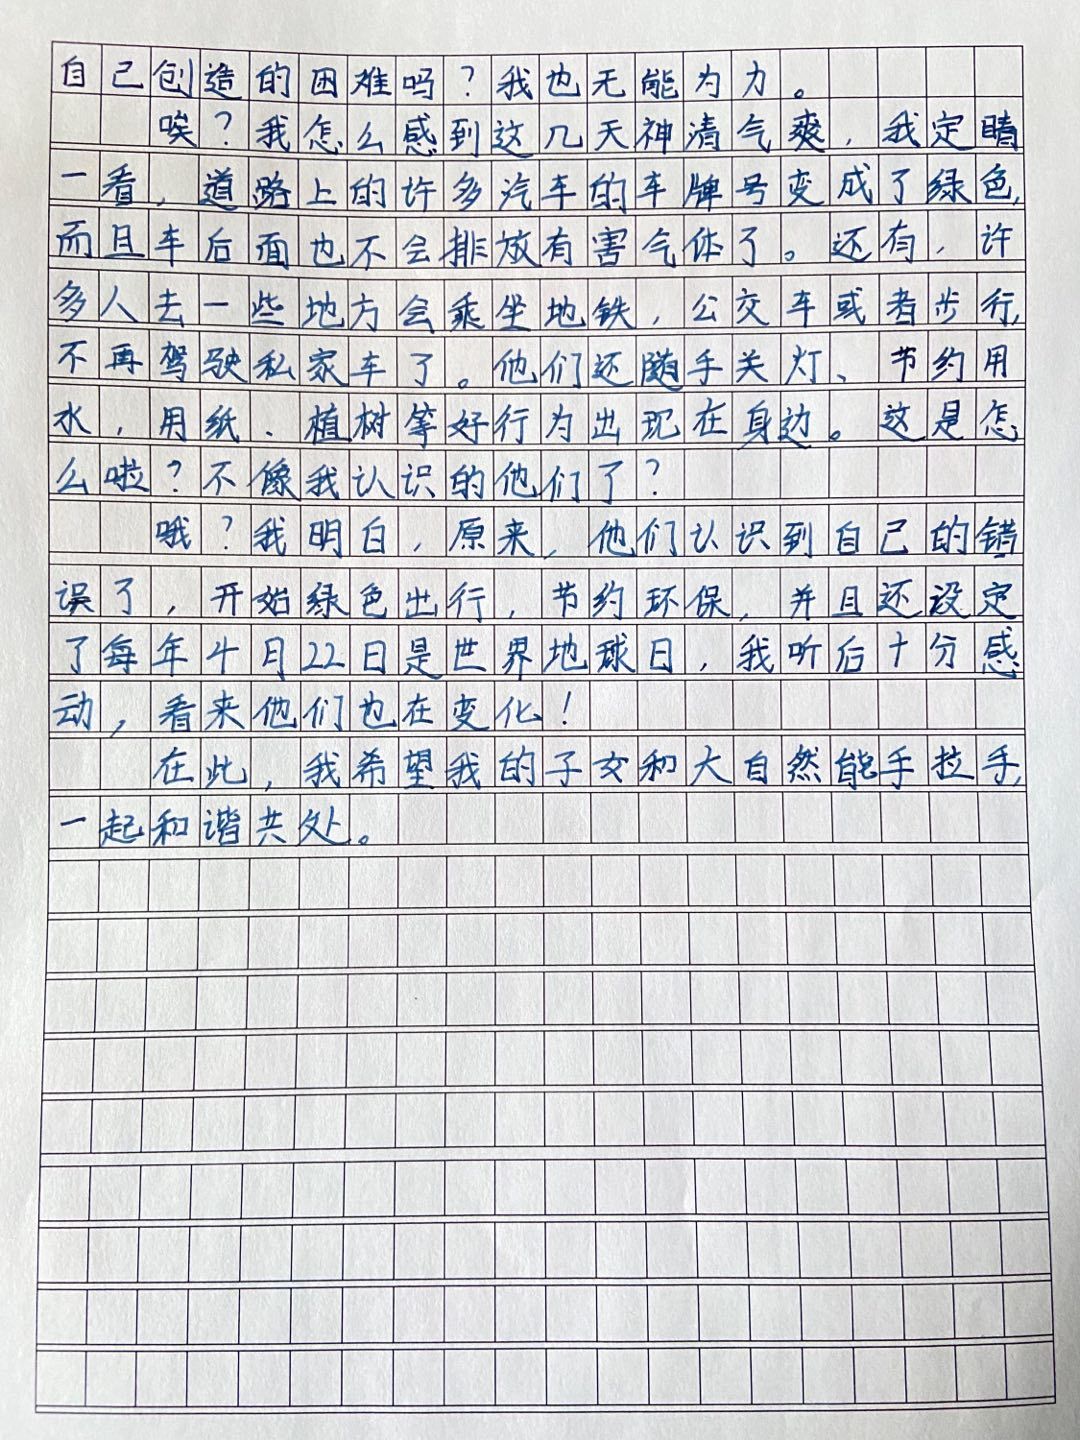 自己创造的困难吗？我也无能为力。
唉？我怎么感到这几天神清气爽，我定睛
一看，道路上的许多汽车的车牌号变成了绿色，
而且车后面也不会排放有害气体了。还有，许
多人去一些地方会乘坐地铁，公交车或者步行，
不再驾驶私家车了。他们还随手关灯、节约用
水，用纸、植树等好行为出现在身边。这是怎
么啦？不像我认识的他们了？
哦？我明白，原来，他们认识到自己的错
误了，开始绿色出行，节约环保，并且还设定
了每年4月22日是世界地球日，我听后十分感
动，看来他们也在变化！
在此，我希望我的子女和大自然能手拉手，
一起和谐共处。